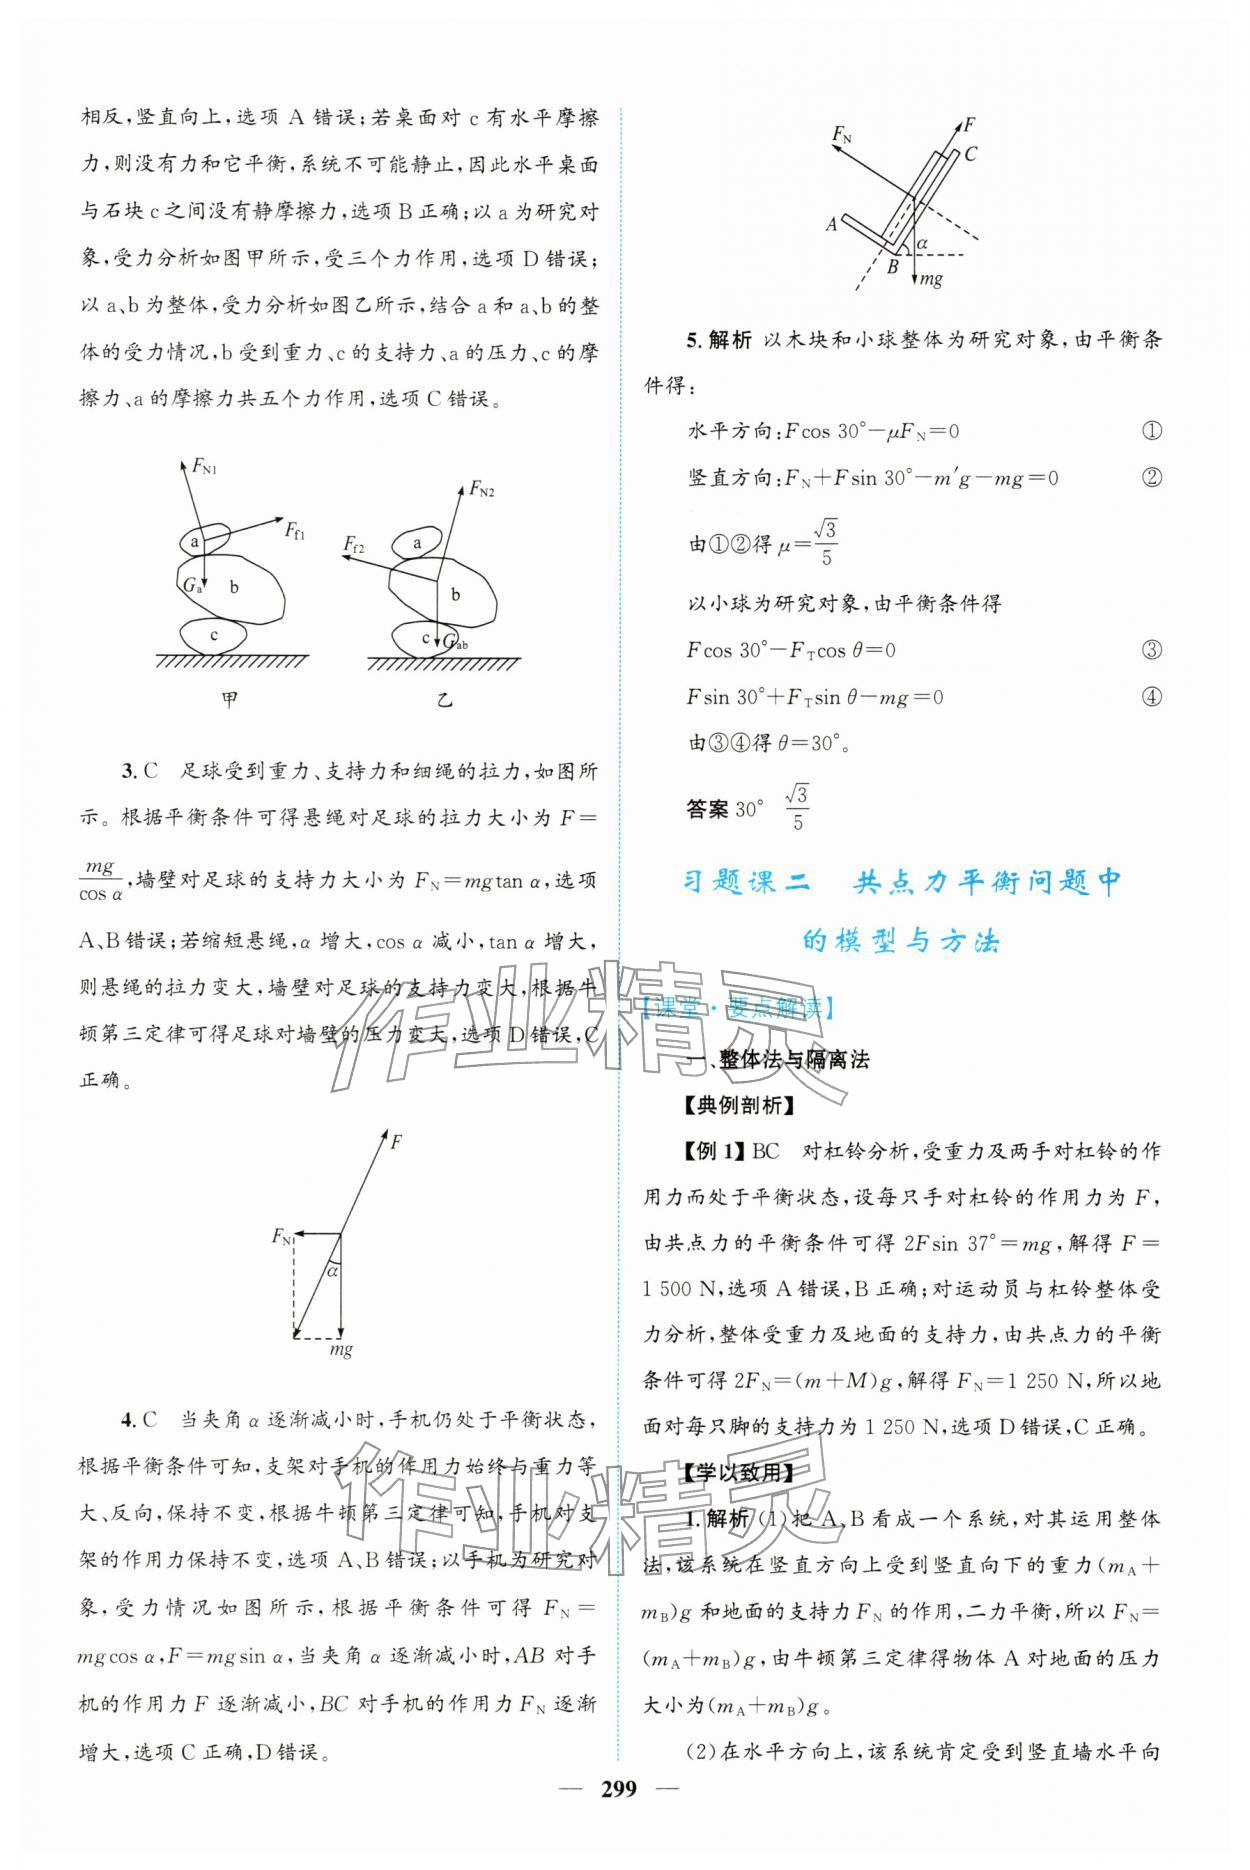 相反,竖直向上,选项 A 错误;若桌面对 c 有水平摩擦
力,则没有力和它平衡,系统不可能静止,因此水平桌面
与石块 c 之间没有静摩擦力,选项 B 正确;以 a 为研究对
象,受力分析如图甲所示,受三个力作用,选项 D 错误;
以 a、b 为整体,受力分析如图乙所示,结合 a 和 a、b 的整
体的受力情况,b 受到重力、c 的支持力、a 的压力、c 的摩
擦力、a 的摩擦力共五个力作用,选项 C 错误。
F_N1
F_f1
a
G_a
b
c
甲
F_N2
F_f2
a
b
c
G_ab
乙
3. C 足球受到重力、支持力和细绳的拉力,如图所
示。根据平衡条件可得悬绳对足球的拉力大小为 F=
mg/cos α,墙壁对足球的支持力大小为 F_N=mgtan α,选项
A、B 错误;若缩短悬绳,α 增大,cos α 减小,tan α 增大,
则悬绳的拉力变大,墙壁对足球的支持力变大,根据牛
顿第三定律可得足球对墙壁的压力变大,选项 D 错误,C
正确。
F
F_N
α
mg
4. C 当夹角 α 逐渐减小时,手机仍处于平衡状态,
根据平衡条件可知,支架对手机的作用力始终与重力等
大、反向,保持不变,根据牛顿第三定律可知,手机对支
架的作用力保持不变,选项 A、B 错误;以手机为研究对
象,受力情况如图所示,根据平衡条件可得 F_N=
mgcos α,F=mgsin α,当夹角 α 逐渐减小时,AB 对手
机的作用力 F 逐渐减小,BC 对手机的作用力 F_N 逐渐
增大,选项 C 正确,D 错误。
F_N
F
C
A
α
B
mg
5. 解析 以木块和小球整体为研究对象,由平衡条
件得:
水平方向:Fcos 30°−μF_N=0 ①
竖直方向:F_N+Fsin 30°−m′g−mg=0 ②
由①②得 μ=√3/5
以小球为研究对象,由平衡条件得
Fcos 30°−F_Tcos θ=0 ③
Fsin 30°+F_Tsin θ−mg=0 ④
由③④得 θ=30°。
答案 30° √3/5
习题课二 共点力平衡问题中
的模型与方法
【课堂·要点解读】
一、整体法与隔离法
【典例剖析】
【例 1】BC 对杠铃分析,受重力及两手对杠铃的作
用力而处于平衡状态,设每只手对杠铃的作用力为 F,
由共点力的平衡条件可得 2Fsin 37°=mg,解得 F=
1 500 N,选项 A 错误,B 正确;对运动员与杠铃整体受
力分析,整体受重力及地面的支持力,由共点力的平衡
条件可得 2F_N=(m+M)g,解得 F_N=1 250 N,所以地
面对每只脚的支持力为 1 250 N,选项 D 错误,C 正确。
【学以致用】
1. 解析 (1)把 A、B 看成一个系统,对其运用整体
法,该系统在竖直方向上受到竖直向下的重力(m_A+
m_B)g 和地面的支持力 F_N 的作用,二力平衡,所以 F_N=
(m_A+m_B)g,由牛顿第三定律得物体 A 对地面的压力
大小为(m_A+m_B)g。
(2)在水平方向上,该系统肯定受到竖直墙水平向
— 299 —
作业精灵
作业精灵